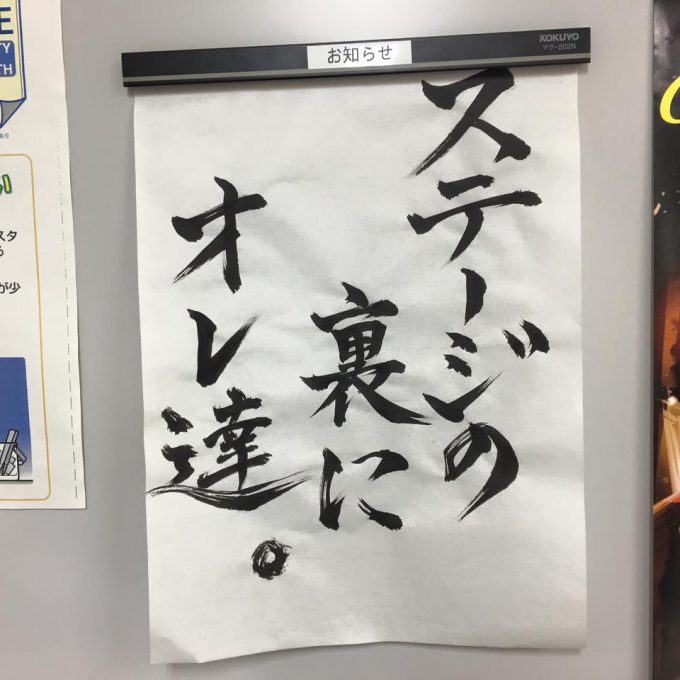 お知らせ
KOKUYO
マク-202N
ステージの
裏に
オレ達。
E
TY
TH
スタ
る
が少